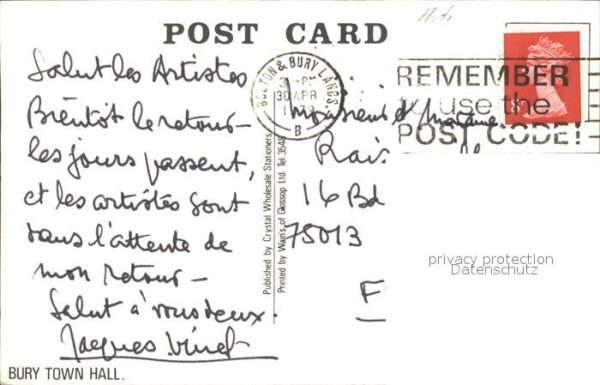 POST CARD
Salut les Artistes
Bientôt le retour -
les jours passent,
et les artistes sont
dans l'attente de
mon retour -
Salut à vous deux.
Jacques
BURY TOWN HALL.
Published by Crystal Wholesale Stationers.
Printed by Warr's of Glossop Ltd. Tel 3548
BOLTON & BURY LANCS.
30 APR
B
REMEMBER
use the
POST CODE!
16 Bd
75013
F
privacy protection
Datenschutz